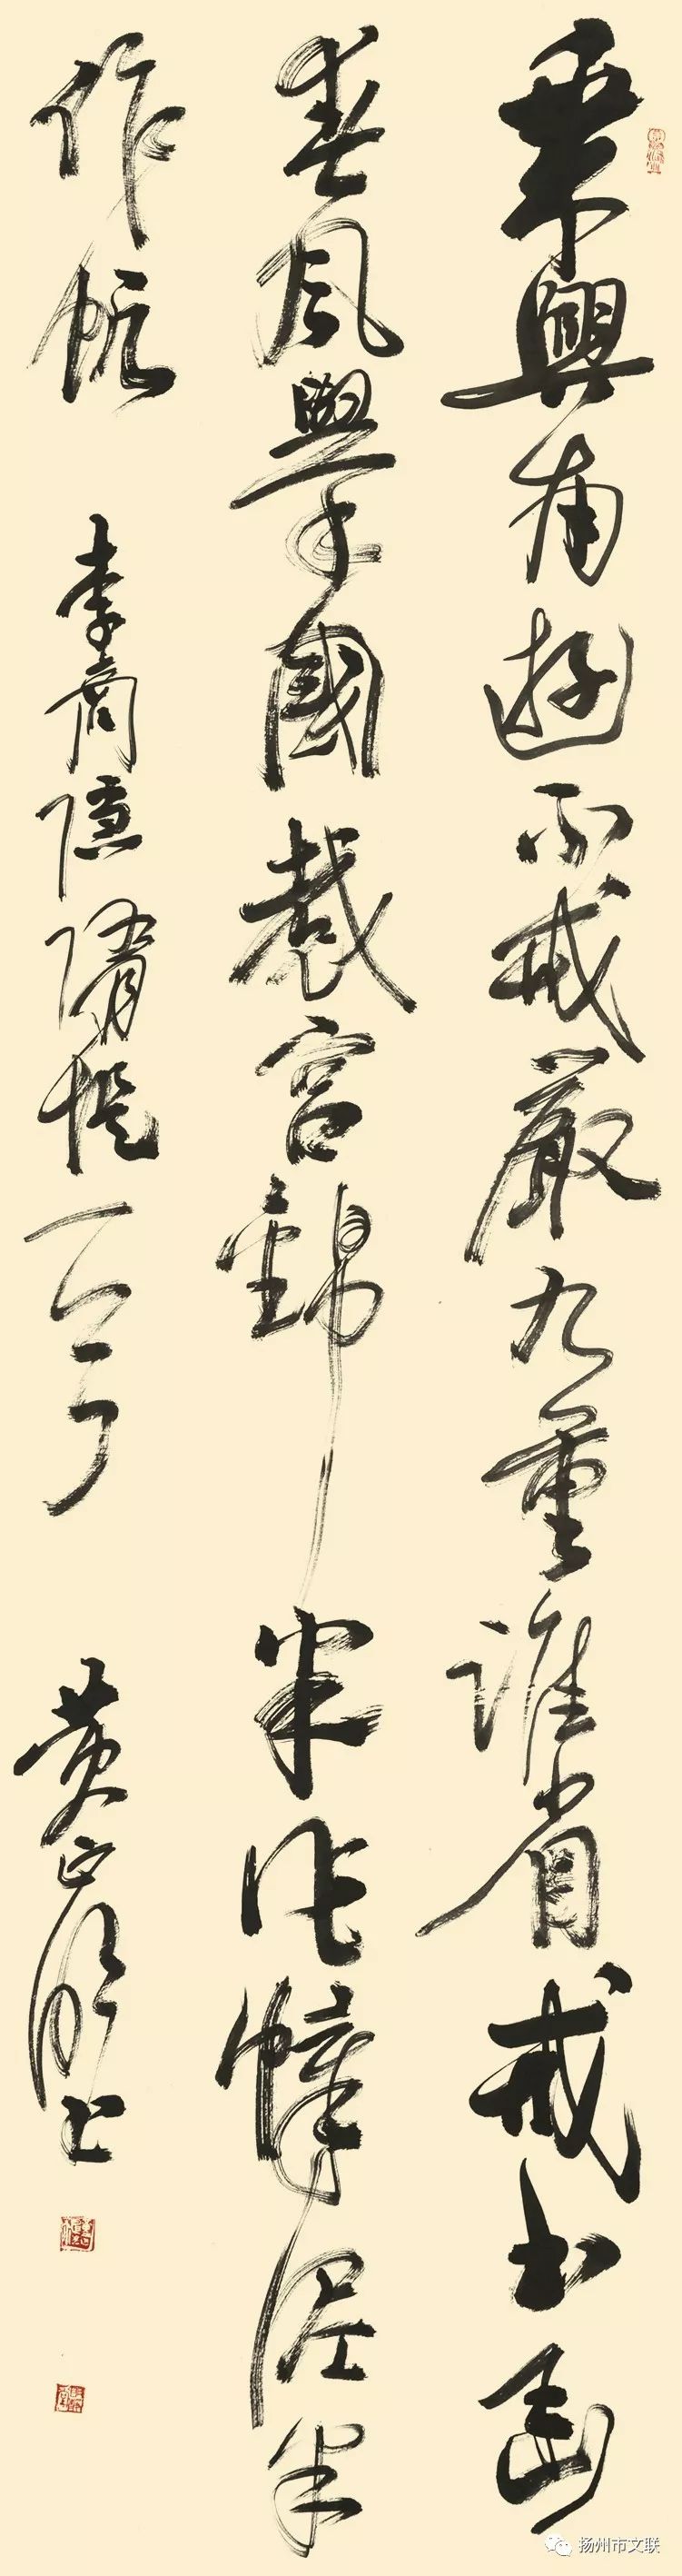 乘興南遊不戒嚴九重誰省戒書函
春風舉國裁宮錦半作幛泥半
作帆 李商隱隋堤一首 黃正書
扬州市文联